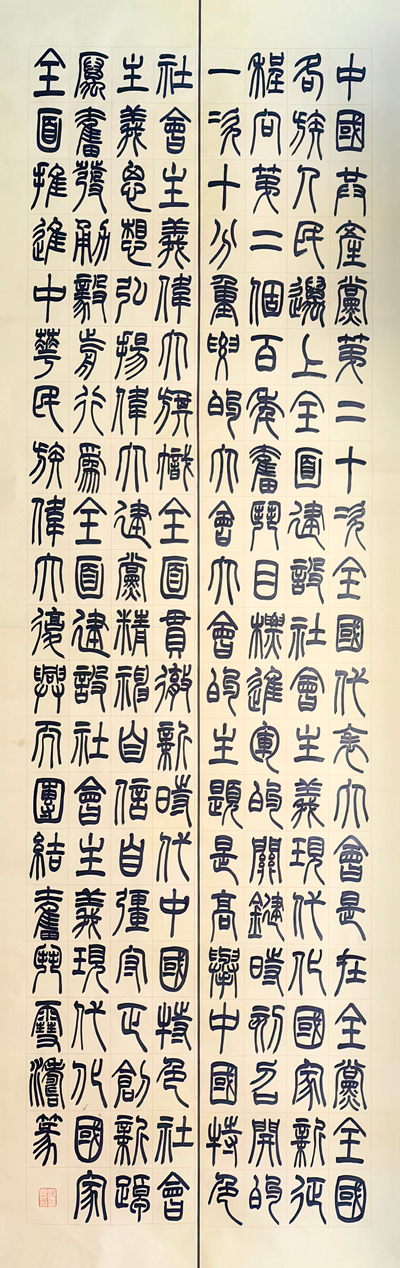 中國共產黨第二十次全國代表大會是在全黨全國
各族人民邁上全面建設社會主義現代化國家新征
程向第二個百年奮鬥目標進軍的關鍵時刻召開的
一次十分重要的大會大會的主題是高舉中國特色
社會主義偉大旗幟全面貫徹新時代中國特色社會
主義思想弘揚偉大建黨精神自信自彊守正創新踔
厲奮發勇毅前行為全面建設社會主義現代化國家
全面推進中華民族偉大復興而團結奮鬥雪濤篆